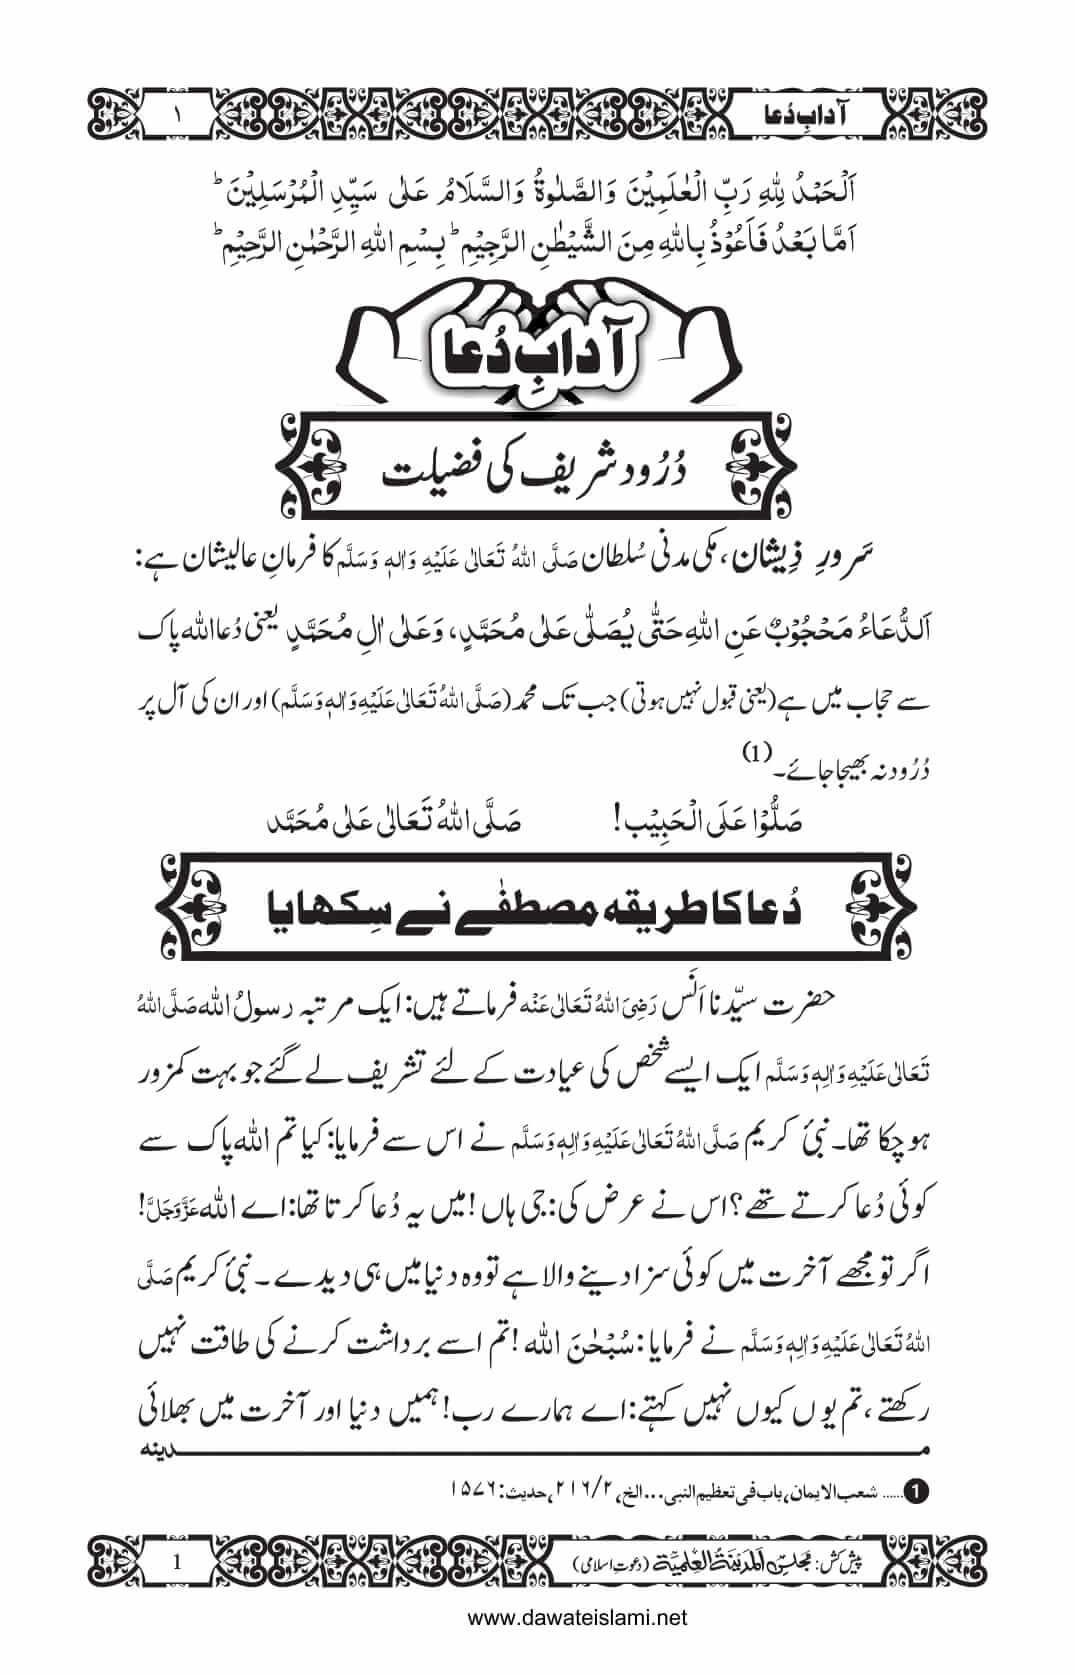 آدابِ دُعا
۱
اَلْحَمْدُ لِلّٰهِ رَبِّ الْعٰلَمِيْنَ وَالصَّلٰوةُ وَالسَّلَامُ عَلٰى سَيِّدِ الْمُرْسَلِيْنَ ؕ
اَمَّا بَعْدُ فَاَعُوْذُ بِاللّٰهِ مِنَ الشَّيْطٰنِ الرَّجِيْمِ ؕ بِسْمِ اللّٰهِ الرَّحْمٰنِ الرَّحِيْمِ ؕ
آدابِ دُعا
دُرُود شریف کی فضیلت
سَرورِ ذِیشان، مکی مدنی سُلطان صَلَّی اللّٰهُ تَعَالٰی عَلَیْهِ وَاٰلِهٖ وَسَلَّم کا فرمانِ عالیشان ہے:
اَلدُّعَاءُ مَحْجُوْبٌ عَنِ اللّٰهِ حَتّٰى يُصَلّٰى عَلٰى مُحَمَّدٍ، وَعَلٰى اٰلِ مُحَمَّدٍ یعنی دُعا اللّٰه پاک
سے حجاب میں ہے (یعنی قبول نہیں ہوتی) جب تک محمد (صَلَّی اللّٰهُ تَعَالٰی عَلَیْهِ وَاٰلِهٖ وَسَلَّم) اور ان کی آل پر
دُرُود نہ بھیجا جائے۔ (1)
صَلُّوْا عَلَی الْحَبِیْب! صَلَّی اللّٰهُ تَعَالٰی عَلٰی مُحَمَّد
دُعا کا طریقہ مصطفٰے نے سِکھایا
حضرت سیِّدنا اَنَس رَضِیَ اللّٰهُ تَعَالٰی عَنْه فرماتے ہیں: ایک مرتبہ رسولُ اللّٰه صَلَّی اللّٰهُ
تَعَالٰی عَلَیْهِ وَاٰلِهٖ وَسَلَّم ایک ایسے شخص کی عیادت کے لئے تشریف لے گئے جو بہت کمزور
ہو چکا تھا۔ نبیٔ کریم صَلَّی اللّٰهُ تَعَالٰی عَلَیْهِ وَاٰلِهٖ وَسَلَّم نے اس سے فرمایا: کیا تم اللّٰه پاک سے
کوئی دُعا کرتے تھے؟ اس نے عرض کی: جی ہاں! میں یہ دُعا کرتا تھا: اے اللّٰه عَزَّوَجَلَّ!
اگر تو مجھے آخرت میں کوئی سزا دینے والا ہے تو وہ دنیا میں ہی دیدے۔ نبیٔ کریم صَلَّی
اللّٰهُ تَعَالٰی عَلَیْهِ وَاٰلِهٖ وَسَلَّم نے فرمایا: سُبْحٰنَ اللّٰه! تم اسے برداشت کرنے کی طاقت نہیں
رکھتے، تم یوں کیوں نہیں کہتے: اے ہمارے رب! ہمیں دنیا اور آخرت میں بھلائی
مـــدینه
1 ...... شعب الایمان، باب فی تعظیم النبی...الخ، ۲/۲۱۶، حدیث: ۱۵۷۶
پیش کش: مجلس اَلْمَدِیْنَةُ الْعِلْمِیَّة (دعوتِ اسلامی)
1
www.dawateislami.net